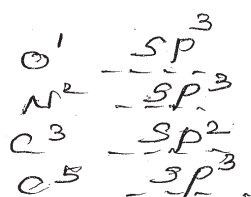 O¹ sp³
N² sp³
C³ sp²
C⁵ sp³